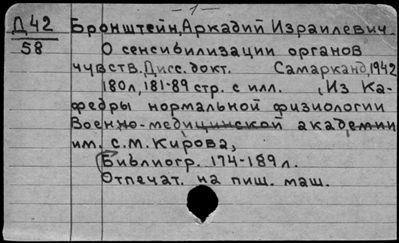 -1-
Д42 Бронштейн, Аркадий Израилевич.
58 О сенсибилизации органов
чувств. Дисс. докт. Самарканд, 1942
180л, 181-89 стр. с илл. , Из Ка-
федры нормальной физиологии
Военно-медицинской академии
им. С.М. Кирова,
Библиогр. 174-189 л.
Отпечат. на пиш. маш.